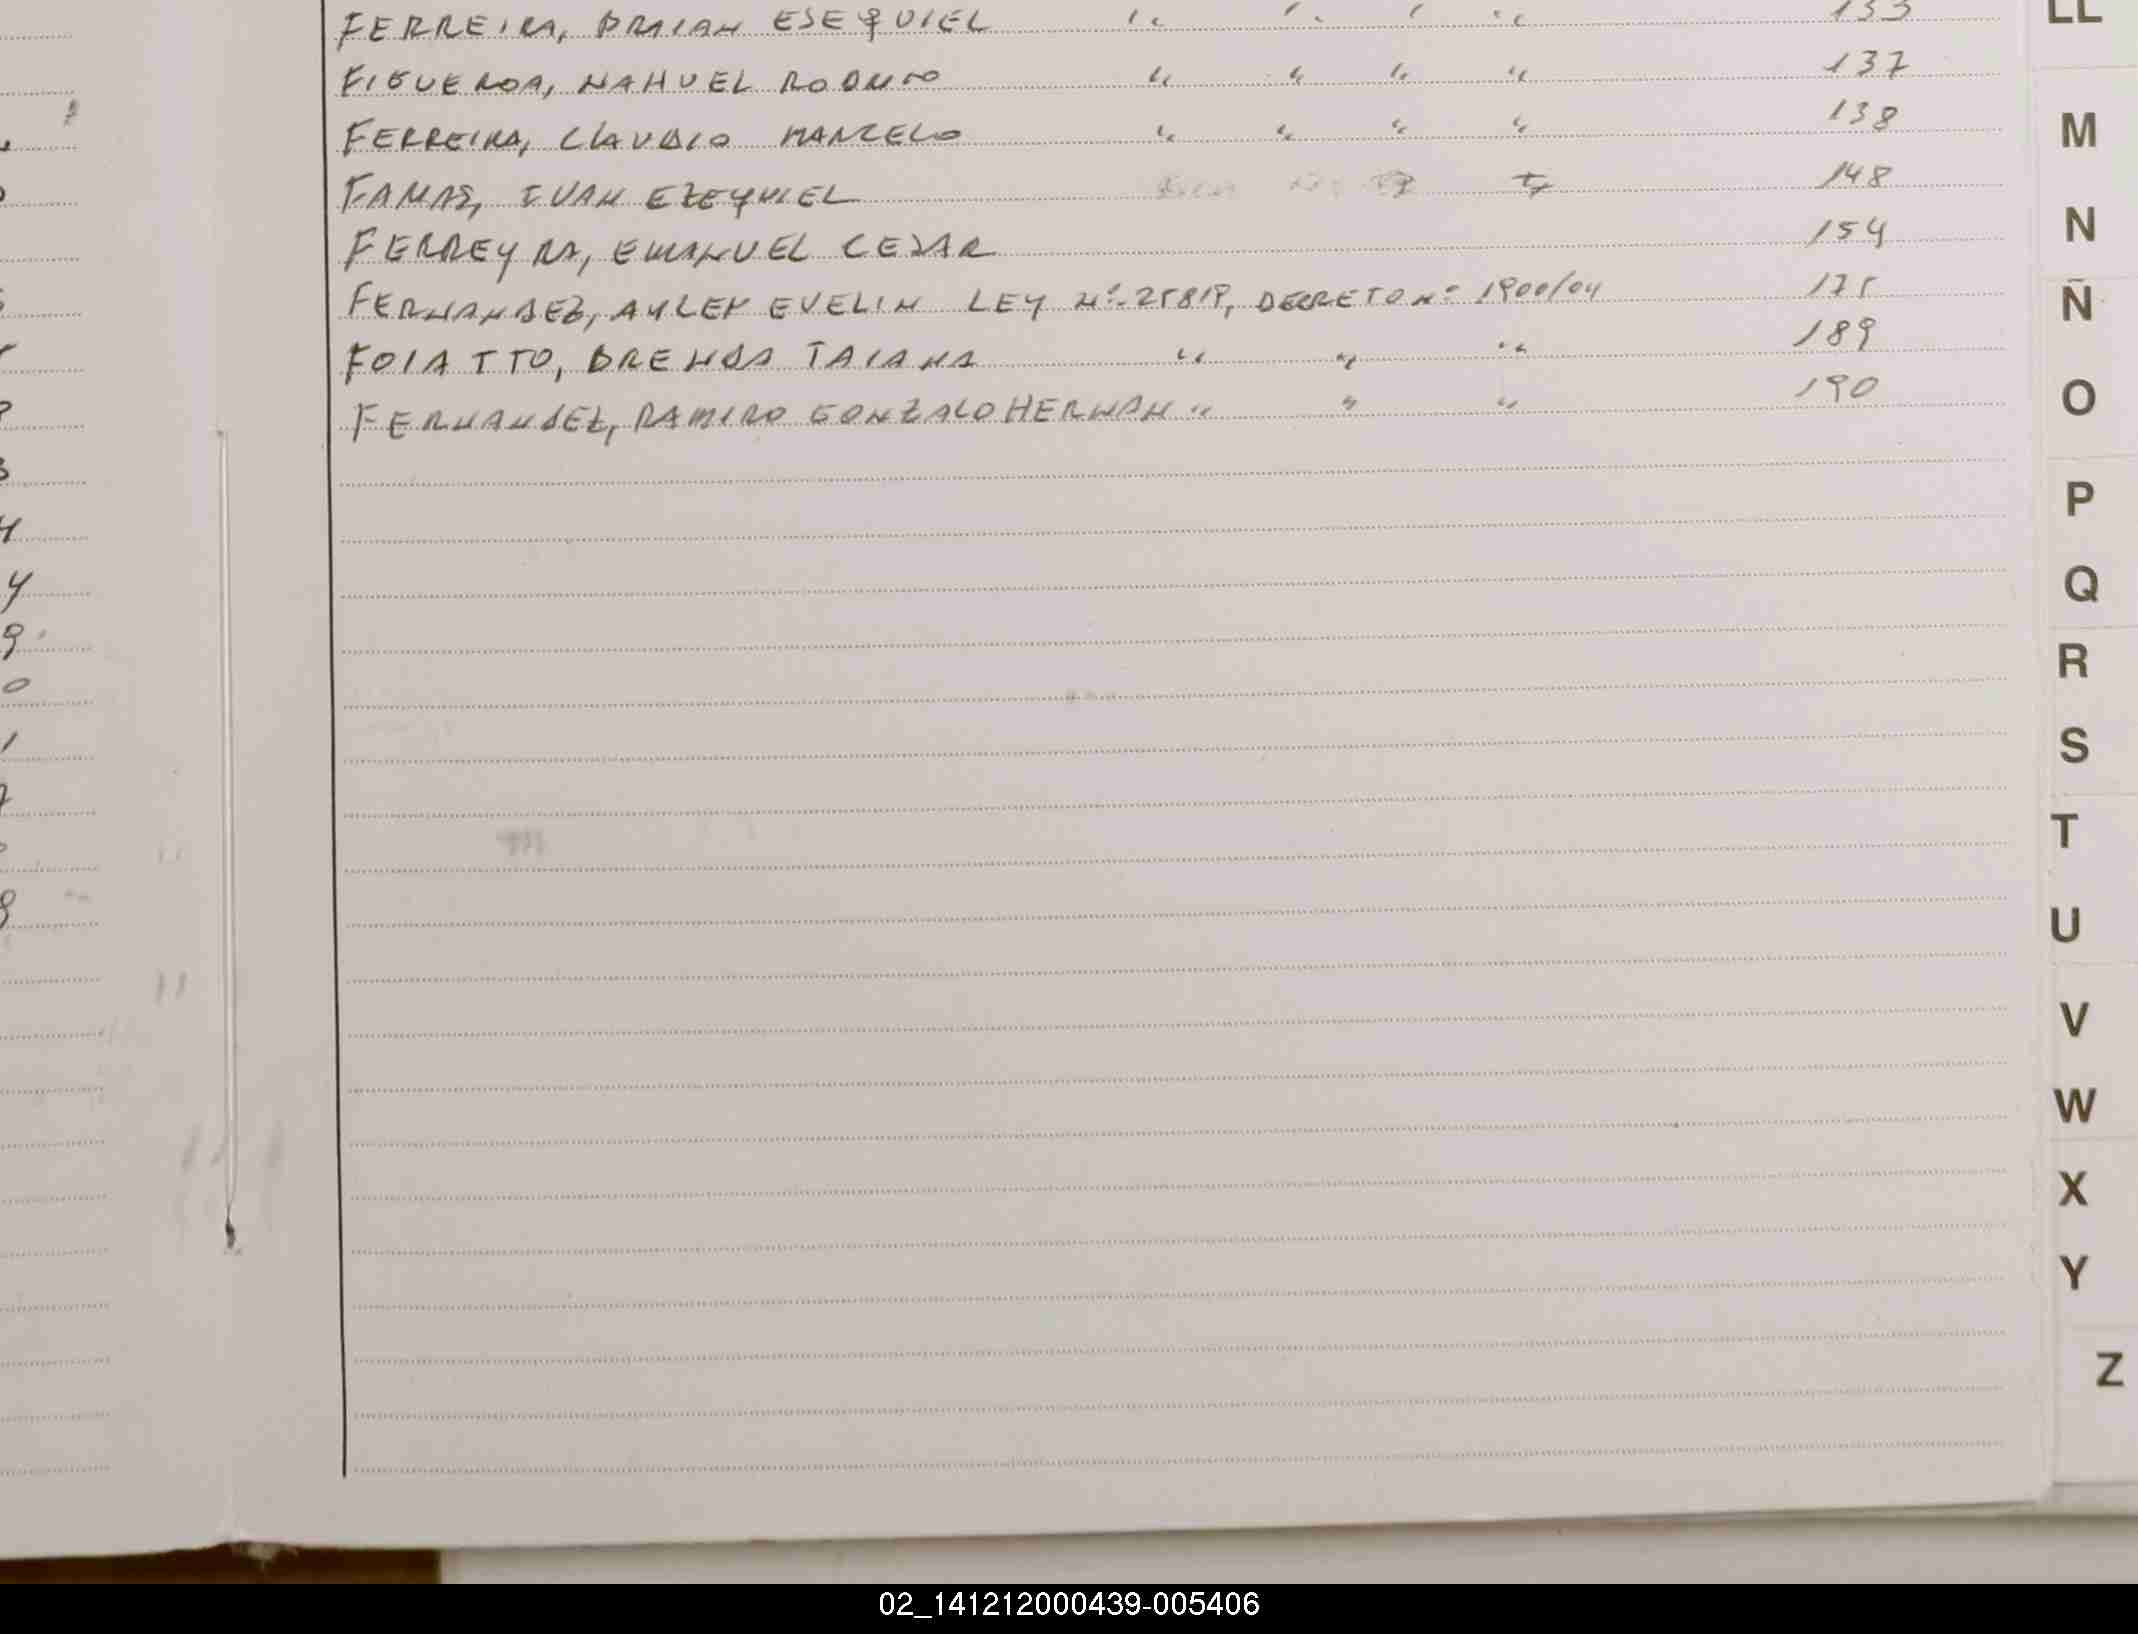 FERREIRA, BRAIAN ESEQUIEL " " " " 133
FIGUEROA, NAHUEL RODRIGO " " " " 137
FERREIRA, CLAUDIO MARCELO " " " " 138
FAMAS, IVAN EZEQUIEL 148
FERREYRA, EMANUEL CESAR 154
FERNANDEZ, AYLEN EVELIN LEY Nº 25819, DECRETO Nº 1900/04 175
FOIATTO, BRENDA TAIANA " " " 189
FERNANDEZ, RAMIRO GONZALO HERNAN " " " 190
LL
M
N
Ñ
O
P
Q
R
S
T
U
V
W
X
Y
Z
02_141212000439-005406